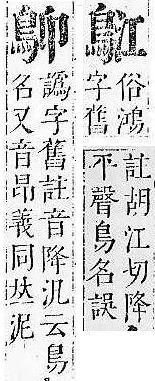 俗鴻
字舊
註胡江切降
不聲鳥名誤
譌字舊註音降汎云鳥
名又音昂義同𠀤泥